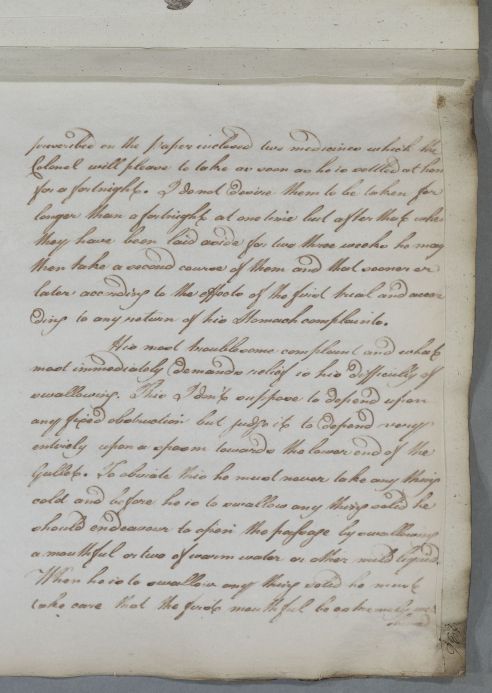 prescribed in the paper inclosed two medicines which the
Colonel will please to take as soon as he is settled at hom
for a fortnight. I do not desire them to be taken for
longer than a fortnight at one time but after that whe
they have been laid aside for two three weeks he may
then take a second course of them and that sooner or
later according to the effects of the first trial and accor
ding to any return of his Stomach complaints.
His most troublesome complaint and what
most immediately demands relief is his difficulty of
swallowing. This I don't suppose to depend upon
any fixed obstruction but judge it to depend very
entirely upon a spasm towards the lower end of the
Gullet. To obviate this he must never take any thing
cold and before he is to swallow any thing solid he
should endeavour to open the passage by swallowing
a mouthful or two of warm water or other mild liquid.
When he is to swallow any thing solid he must
take care that the first mouthful be extremely